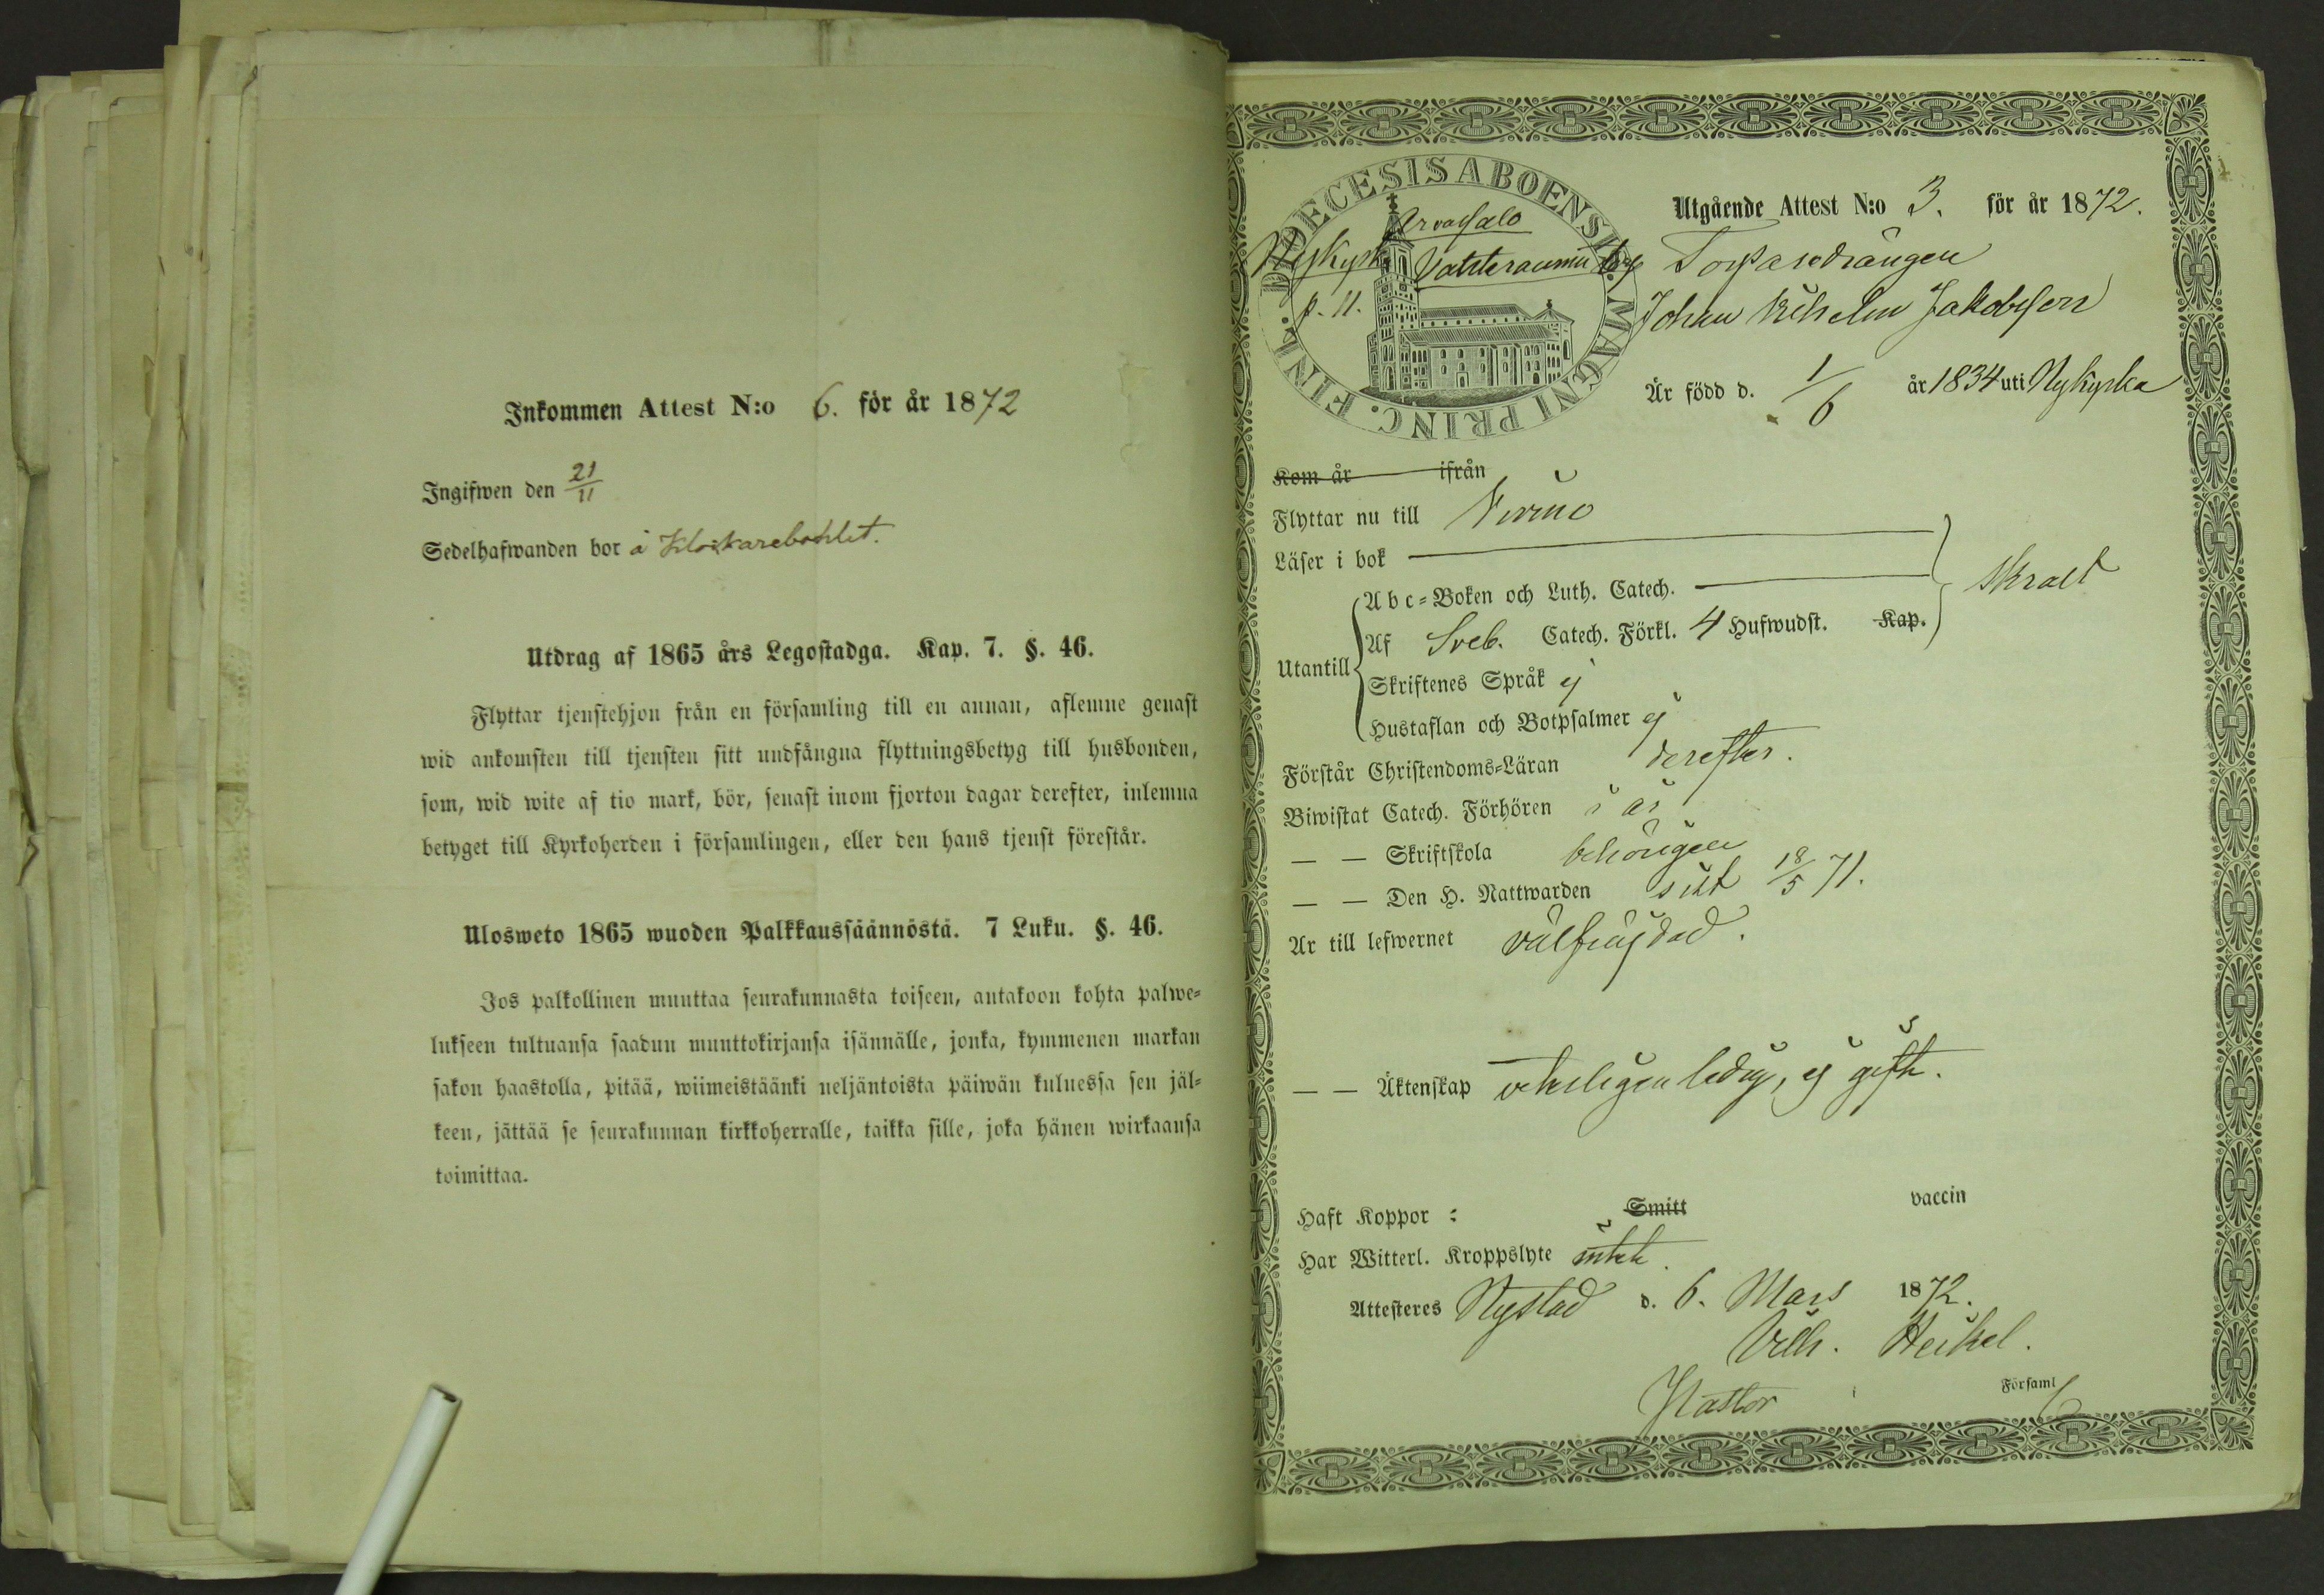 Inkommen Attest N:o 6. för år 1872
Ingifwen den 21/11
Sedelhafwanden bor å Klockarebohlet.
Utdrag af 1865 års Legostadga. Kap. 7. §. 46.
Flyttar tjenstehjon från en församling till en annan, aflemne genast
wid ankomsten till tjensten sitt undfångna flyttningsbetyg till husbonden,
som, wid wite af tio mark, bör, senast inom fjorton dagar derefter, inlemna
betyget till Kyrkoherden i församlingen, eller den hans tjenst förestår.
Ulosweto 1865 wuoden Palkkaussäännöstä. 7 Luku. §. 46.
Jos palkollinen muuttaa seurakunnasta toiseen, antakoon kohta palwe-
lukseen tultuansa saadun muuttokirjansa isännälle, jonka, kymmenen markan
sakon haastolla, pitää, wiimeistäänki neljäntoista päiwän kuluessa sen jäl-
keen, jättää se seurakunnan kirkkoherralle, taikka sille, joka hänen wirkaansa
toimittaa.
DIOECESIS ABOENSIS. MAGNI PRINC. FINL.
Utgående Attest N:o 3. för år 1872.
Arvassalo
Nykyrk. Vatteraumu by
p. 11.
Torparedrängen
Johan Vilhelm Jakobsson
Är född d. 1/6 år 1834 uti Nykyrka
Kom år ifrån
Flyttar nu till Virmo
Läser i bok
Abc-Boken och Luth. Catech.
Utantill Af Sveb. Catech. Förkl. 4 Hufwudst. Kap. skralt
Skriftenes Språk ej
Hustaflan och Botpsalmer ej
Förstår Christendoms-Läran derefter.
Biwistat Catech. Förhören i år
— — Skriftskola behörigen
— — Den H. Nattwarden sist 18/5 71.
Är till lefwernet välfrägdad.
— — Äktenskap ledig, ej gift.
Haft Koppor : Smitt vaccin
Har Witterl. Kroppslyte intet.
Attesteres Nystad d. 6. Mars 1872.
Vilh. Heikel.
Pastor i Församl